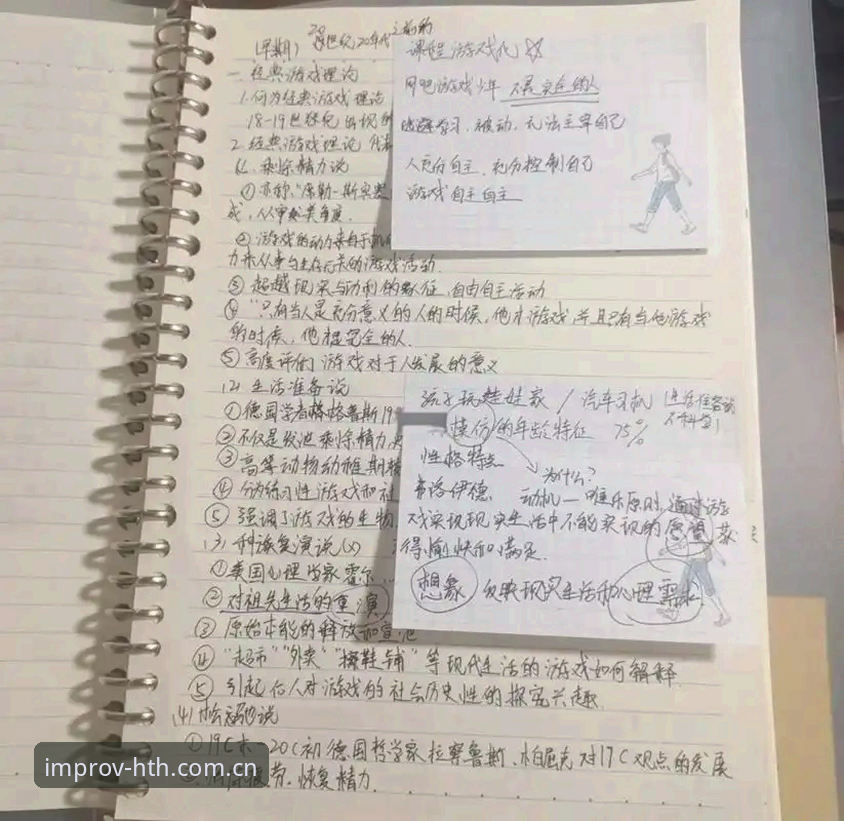 20世纪20年代之前的
(早期)
一、经典游戏理论
1.何为经典游戏理论
18-19世纪
2.经典游戏理论
(1)、剩余精力说
①亦称"席勒-斯宾塞
成,从审美角度.
②游戏的动力来自于机
力来从事与生存无关的游戏活动.
③超越现实与功利的象征,自由自主活动
④"只有当人是充分意义的人的时候,他才游戏,并且只有当他游戏
的时候,他才是完全的人.
⑤高度评价游戏对于人发展的意义
(2)生活准备说
①德国学者格鲁斯19
②不仅是发泄剩余精力,
③高等动物幼稚期
④分为练习性游戏和社
⑤强调了游戏的生物
(3)种族复演说
①美国心理学家霍尔
②对祖先生活的重演
③原始本能的释放
④"超市""外卖""擦鞋铺"等现代生活的游戏如何解释
⑤引起后人对游戏的社会历史性的探究兴趣
(4)松弛说
①19C末、20C初德国哲学家拉察鲁斯、帕屈克对17C观点的发展
疲劳、恢复精力.
课程游戏化☆
网吧游戏少年 不是实在的人
学习,被动,无法主宰自己
人充分自主、充分控制自己
游戏自主自主
孩子玩娃娃家/汽车司机
模仿的年龄特征 75%
性格特点
为什么?
弗洛伊德 动机—唯乐原则,通过游
戏实现现实生活中不能实现的愿望 获
得愉快和满足.
想象 反映现实生活和心理需求
improv-hth.com.cn